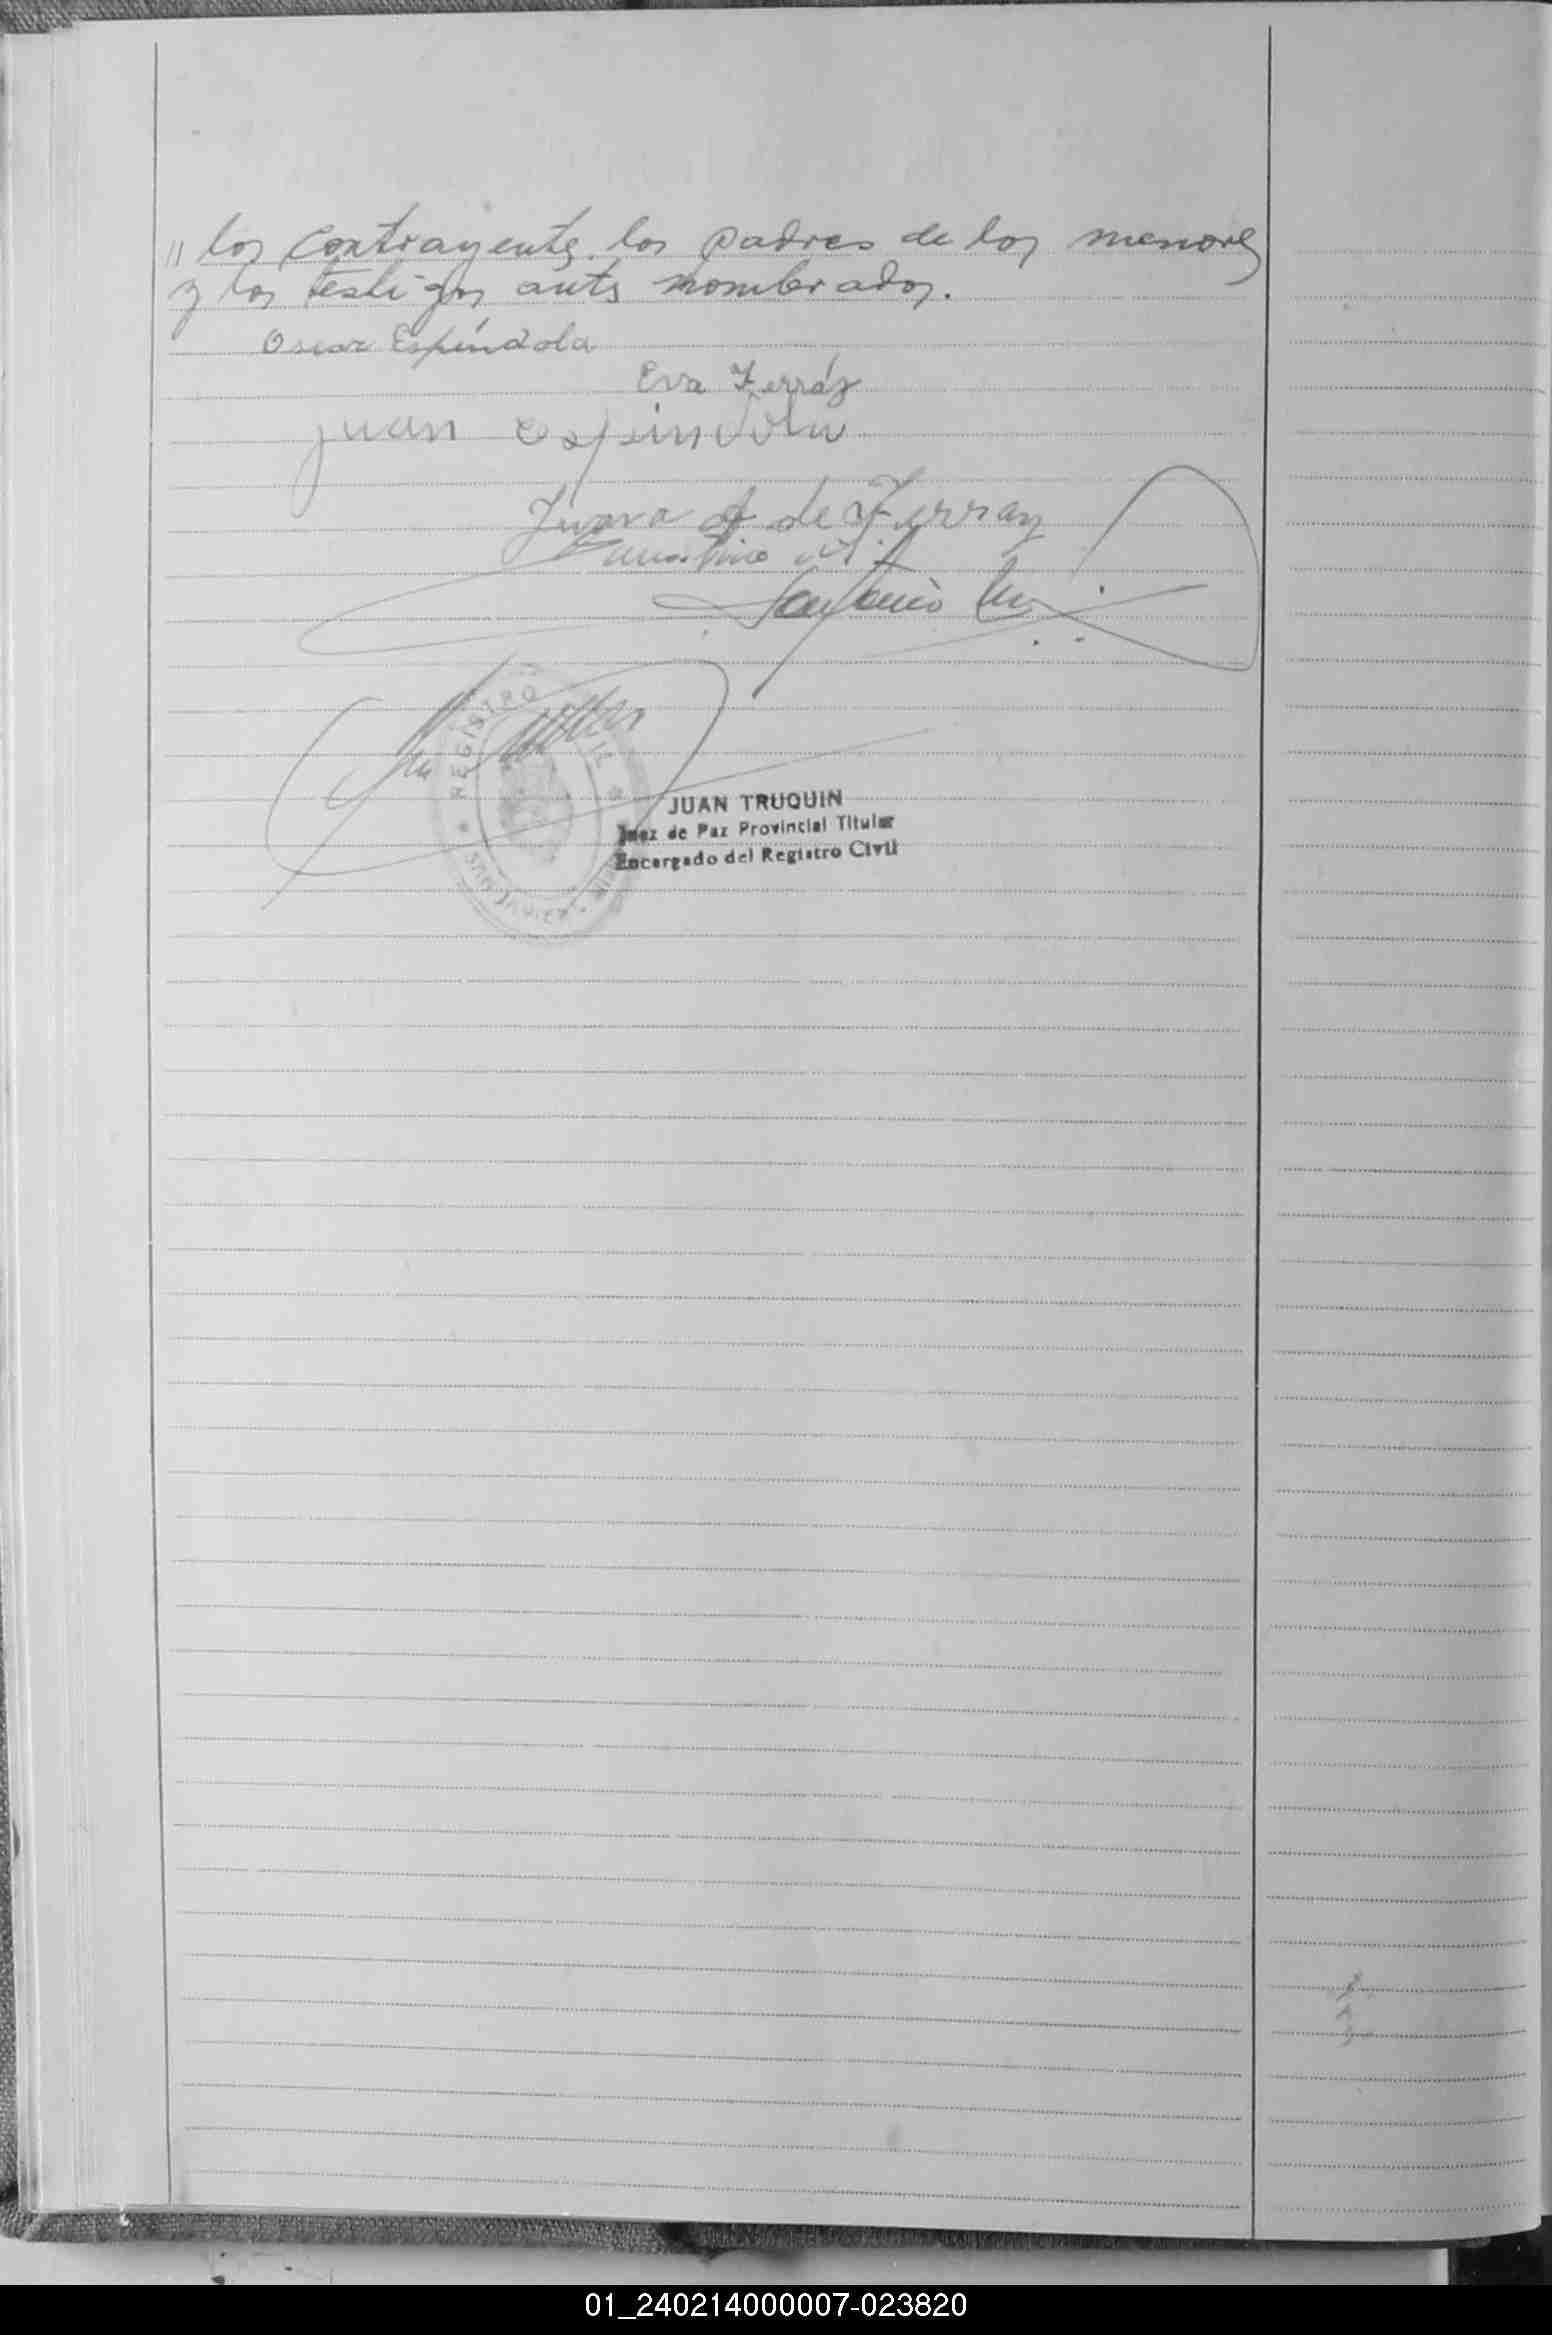 " los contrayents. los padres de los menores
y los testigos ants nombrados.
Oscar Espíndola
Eva Ferráz
juan espindola
Juana A de Ferraz
REGISTRO
JUAN TRUQUIN
Juez de Paz Provincial Titular
Encargado del Registro Civil
01_240214000007-023820